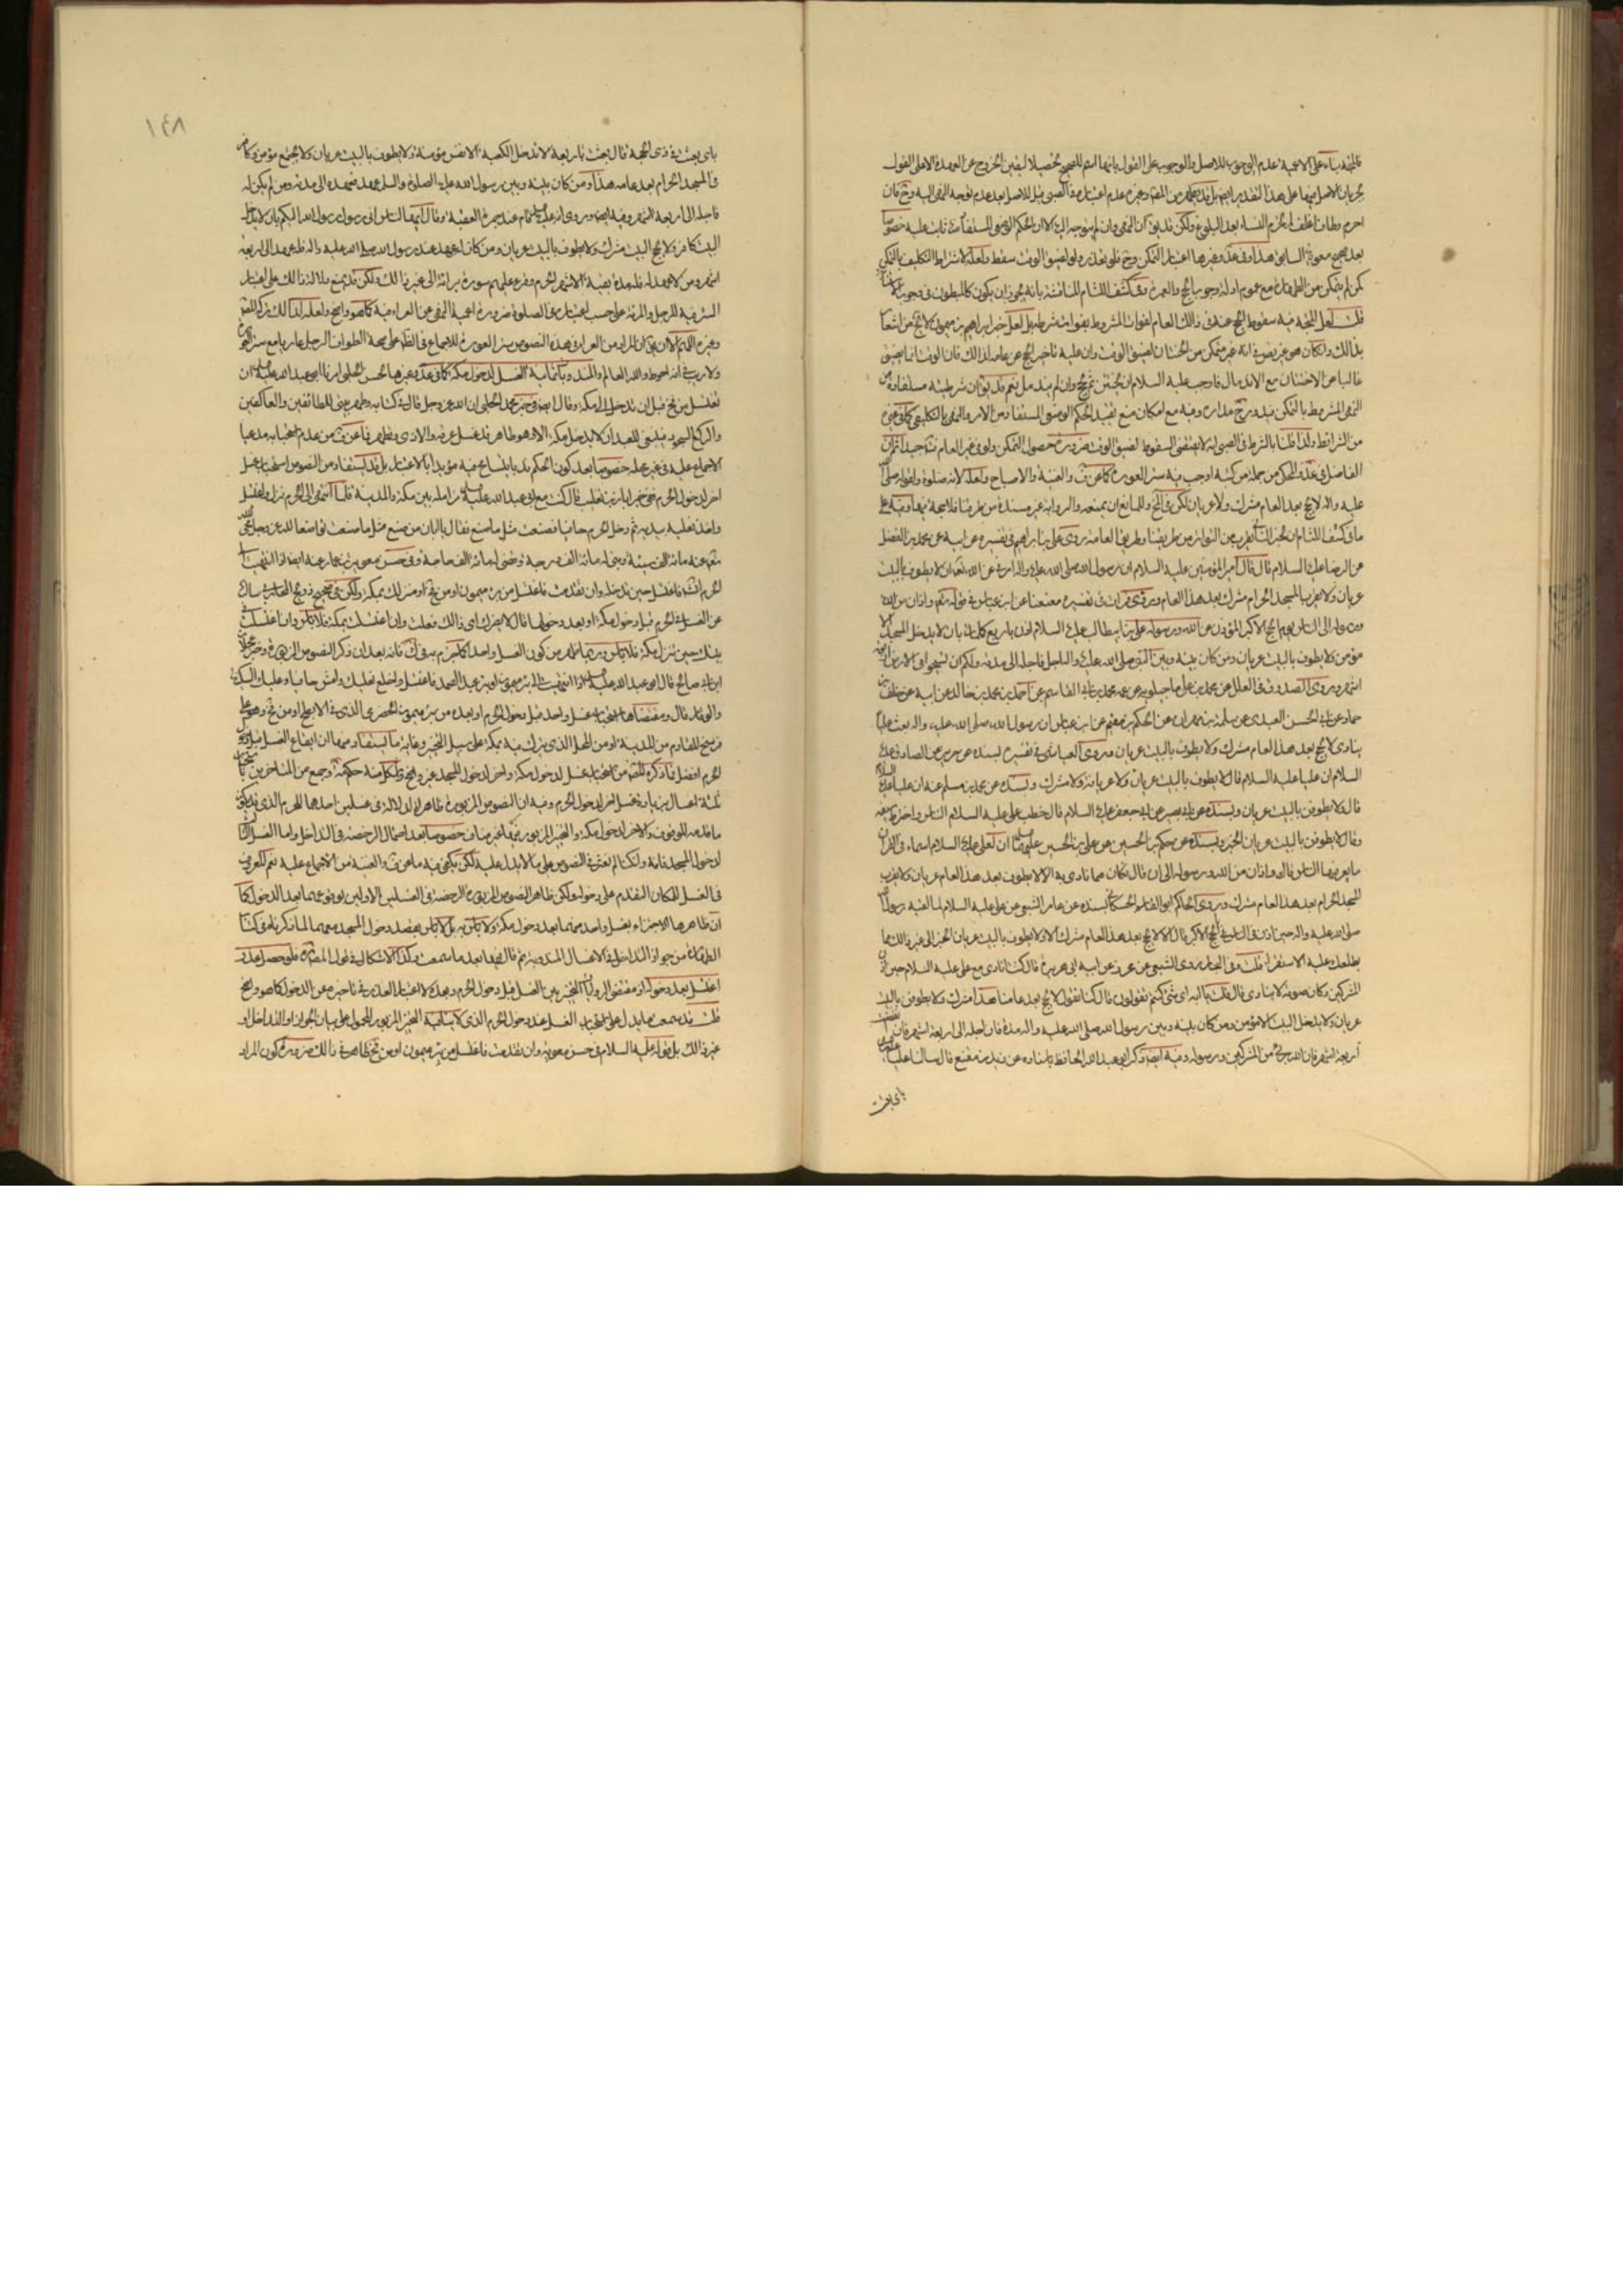 فالمتجه بناء على الاعمية عدم الوجوب للاصل والوجوب على القول بانها اسم للصحيح تحصيلا ليقين الخروج عن العهدة الا على القول
بجريان الاصل فيها على هذا التقدير ايضا بل قد يظهر من عدم اعتباره في الصبي للاصل بعد عدم توجه النهي اليه وح فان
احرم وطاف اغلف لم تحرم النساء بعد البلوغ ولكن قد يق ان النهي وان لم يتوجه اليه الا ان الحكم الوضعي المستفاد منه ثابت عليه خصوصا
بعد صحيح معوية السابق هذا وفي عد وغيرها اعتبار التمكن وح فلو تعذر ولو لضيق الوقت سقط ولعله لاشتراط التكليف بالتمكن
كمن لم يتمكن من الطهارة مع عموم ادلة وجوب الحج والعمرة وفي كشف اللثام المناقشة بانه يجوز ان يكون كالمبطون في وجوب
قلت لعل المتجه فيه سقوط الحج عنه في ذلك العام لفوات المشروط بفوات شرطه بل لعل خبر ابراهيم بن ميمون لا يخ من اشعار
بذلك وان كان هو غير نص في انه غير متمكن من الختان لضيق الوقت وان عليه تاخير الحج عن عامه لذلك فان الوقت انما يضيق
غالبا عن الاختتان مع الاندمال فاوجب عليه السلام ان يختتن ثم يحج وان لم يندمل نعم قد يق ان شرطيته مستفادة من
النهي المشروط بالتمكن فيدور ح مداره وفيه مع امكان منع تقييد الحكم الوضعي المستفاد من الامر والنهي بالتكليفي كما في غيره
من الشرائط ولذا قلنا بالشرط في الصبي انه لا يقتضي السقوط لضيق الوقت ضرورة حصول التمكن ولو في غير العام فت جيدا ثم ان
الفاضل في عد والمحكي من جملة من كتبه اوجب فيه ستر العورة كما عن ف والغنية والاصباح ولعله لانه صلوة ولقوله صلى الله
عليه واله لا يحج بعد العام مشرك ولا عريان لكن في لف وللمانع ان يمنعه والرواية غير مسندة من طرقنا فلا حجة فيها وفيه على
ما في كشف اللثام ان الخبر الثاني يقرب من التواتر من طريقنا وطريق العامة روى علي بن ابراهيم في تفسيره عن ابيه عن محمد بن الفضل
عن الرضا عليه السلام قال قال امير المؤمنين عليه السلام ان رسول الله صلى الله عليه واله امرني عن الله تعالى ان لا يطوف بالبيت
عريان ولا يقرب المسجد الحرام مشرك بعد هذا العام وروى فرات في تفسيره معنعنا عن ابن عباس في قوله تعالى واذان من الله
ورسوله الى الناس يوم الحج الاكبر المؤذن عن الله ورسوله علي بن ابيطالب عليه السلام اذن باربع كلمات بان لا يدخل المسجد الا
مؤمن ولا يطوف بالبيت عريان ومن كان بينه وبين النبي صلى الله عليه واله اجل فاجله الى مدته ولكم ان تسيحوا في الارض اربعة
اشهر وروى الصدوق في العلل عن محمد بن علي ماجيلويه عن عمه محمد بن ابي القاسم عن احمد بن محمد بن خالد عن ابيه عن خلف بن
حماد عن ابي الحسن العبدي عن سليمان بن مهران عن الحكم بن مقسم عن ابن عباس ان رسول الله صلى الله عليه واله بعث عليا
ينادي لا يحج بعد هذا العام مشرك ولا يطوف بالبيت عريان وروى العياشي في تفسيره بسنده عن حريز عن الصادق عليه
السلام ان عليا عليه السلام قال لا يطوف بالبيت عريان ولا عريانة ولا مشرك وبسنده عن محمد بن مسلم عنه ان عليا عليه السلام
قال لا يطوفن بالبيت عريان وبسنده عن ابي بصير عن ابي جعفر عليه السلام قال خطب علي عليه السلام الناس واخترط سيفه
وقال لا يطوفن بالبيت عريان الخبر وبسنده عن حكيم بن الحسين عن علي بن الحسين عليهما السلام ان لعلي عليه السلام اسماء في القران
ما يعرفها الناس قال واذان من الله ورسوله الى ان قال فكان مما نادى به الا لا يطوف بعد هذا العام عريان ولا يقرب
المسجد الحرام بعد هذا العام مشرك وروى الحاكم ابو القاسم الحسكاني بسنده عن عامر الشعبي عن علي عليه السلام لما بعثه رسول الله
صلى الله عليه واله حين اذن في الناس في الحج الاكبر قال الا لا يحج بعد هذا العام مشرك الا ولا يطوف بالبيت عريان الخبر الى غير ذلك مما
يطلعك عليه الاستقراء قلت وفي البحار روى الشعبي عن محرز عن ابيه ابي هريرة قال كنت انادي مع علي عليه السلام حين اذن
المشركين وكان صوته لا ينادي قال قلت يا ابه اي شيء كنتم تقولون قال كنا نقول لا يحج بعد عامنا هذا مشرك ولا يطوفن بالبيت
عريان ولا يدخل البيت الا مؤمن ومن كان بينه وبين رسول الله صلى الله عليه واله مدة فان اجله الى اربعة اشهر فاذا انقضت
اربعة اشهر فان الله بريء من المشركين ورسوله وفيه ايضا ذكر ابو عبد الله الحافظ باسناده عن زيد بن مقنع قال سالنا عليا عليه السلام
باي بعثت
١٤٨
باي بعثت في ذي الحجة قال بعثت باربعة لا تدخل الكعبة الا نفس مؤمنة ولا يطوف بالبيت عريان ولا يجتمع مؤمن وكافر
في المسجد الحرام بعد عامه هذا ومن كان بينه وبين رسول الله عليه الصلوة والسلام عهد فعهده الى مدته ومن لم يكن له
فاجله الى اربعة اشهر وفيه ايضا وروى انه عليه السلام قام عند جمرة العقبة وقال ايها الناس اني رسول رسول الله اليكم بان لا يدخل
البيت كافر ولا يحج البيت مشرك ولا يطوف بالبيت عريان ومن كان له عهد عند رسول الله صلى الله عليه واله فله عهده الى اربعة
اشهر ومن لا عهد له فله مدة بقية الاشهر الحرم وقرء عليهم سورة براءة الى غير ذلك ولكن قد يمنع دلالة ذلك على اعتبار
الستر فيه للرجل والمرئة على حسب اعتباره في الصلوة ضرورة اعمية النهي عن العراء منه كما هو واضح ولعله لذا لك تركه المصنف
وغيره اللهم الا ان يق ان المراد من العراء في هذه النصوص ستر العورة للاجماع في الظاهر على صحة الطواف الرجل عاريا مع ستر العورة
ولا ريب في انه احوط والله العالم والمندوبات ثمانية الغسل لدخول مكة كما في عد وغيرها لحسن الحلبي امرنا ابو عبد الله عليه السلام ان
نغتسل من فخ قبل ان ندخل الى مكة وقال ايضا في خبر محمد الحلبي ان الله عز وجل قال في كتابه وطهر بيتي للطائفين والعاكفين
والركع السجود فينبغي للعبد ان لا يدخل مكة الا وهو طاهر قد غسل عرقه والاذى وتطهر فما عن ف من عدم استحبابه مدعيا
الاجماع عليه في غير محله خصوصا بعد كون الحكم ندبا يتسامح فيه مؤيدا بالاعتبار بل قد يستفاد من النصوص استحباب غسل
اخر لدخول الحرم ففي خبر ابان بن تغلب قال كنت مع ابي عبد الله عليه السلام مزامله بين مكة والمدينة فلما انتهى الى الحرم نزل واغتسل
واخذ نعليه بيديه ثم دخل الحرم حافيا فصنعت مثل ما صنع فقال يا ابان من صنع مثل ما صنعت تواضعا لله عز وجل محى الله
عنه مائة الف سيئة وبنى له مائة الف درجة وقضى له مائة الف حاجة وفي حسن معوية بن عمار عنه ايضا اذا انتهيت الى
الحرم انشاء الله فاغتسل حين تدخله وان تقدمت فاغتسل من بئر ميمون او من فخ او منزلك بمكة ولكن في صحيح ذريح المحاربي سالته
عن الغسل في الحرم قبل دخول مكة او بعد دخولها قال لا يضرك اي ذلك فعلت وان اغتسلت بمكة فلا باس وان اغتسلت في
بيتك حين تنزل مكة فلا باس وربما ظهر من كون الغسل واحدا كما جزم به في ك فانه بعد ان ذكر النصوص المزبورة وخبر عجلان
ابي صالح قال ابو عبد الله عليه السلام اذا انتهيت الى بئر ميمون او بئر عبد الصمد فاغتسل واخلع نعليك وامش حافيا وعليك السكينة
والوقار قال ومقتضاها استحباب غسل واحد قبل دخول الحرم او بعده من بئر ميمون الحضرمي الذي في الابطح او من فخ وهو على
فرسخ للقادم من المدينة او من المحل الذي ينزل فيه بمكة على سبيل التخيير وغاية ما يستفاد منها ان ايقاع الغسل قبل دخول
الحرم افضل فما ذكره المصنف من استحباب غسل لدخول مكة واخر لدخول المسجد غير واضح وكذا ما منه حكمه وجمع من المتاخرين باستحباب
ثلثة اغسال بزيادة غسل اخر لدخول الحرم وفيه ان النصوص المزبورة ظاهرة او دلالة في غسلين احدهما للحرم الذي قد يكفي
ما قدمه للوقوف والاخر لدخول مكة والخبر المزبور غير مناف خصوصا بعد احتمال الرخصة في التداخل واما الغسل الثالث
لدخول المسجد فانه وان كنا لم نعثر في النصوص على ما يدل عليه لكن يكفي فيه ما عن ف والغنية من الاجماع عليه نعم المعروف
في الغسل للمكان التقدم على دخوله ولكن ظاهر النصوص المزبورة الرخصة في الغسلين الاولين بوقوعهما بعد الدخول كما
ان ظاهرها الاجتزاء بغسل واحد عنهما بعد دخول مكة ولا باس به بل لا باس بقصد دخول المسجد معهما لما ذكرناه في كتاب
الطهارة من جواز التداخل في الاغسال المندوبة ثم قال فيها بعد ما سمعت وكذا الاشكال في قول المصنف فلو حصل عذر
اغتسل بعد دخوله اذ مقتضى الرواية التخيير بين الغسل قبل دخول الحرم وبعده لا اعتبار العذر في تاخيره عن الدخول كما هو واضح
قلت قد سمعت ما يدل على استحباب الغسل عند دخول الحرم الذي لا ينافيه الخبر المزبور المحمول على بيان الجواز او التداخل او
غير ذلك بل قوله عليه السلام في حسن معوية وان تقدمت فاغتسل من بئر ميمون او من فخ ظاهر في ذلك ضرورة كون المراد